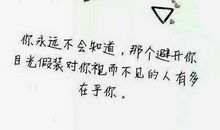 你永远不会知道，那个避开你
目光假装对你视而不见的人有多
在乎你．